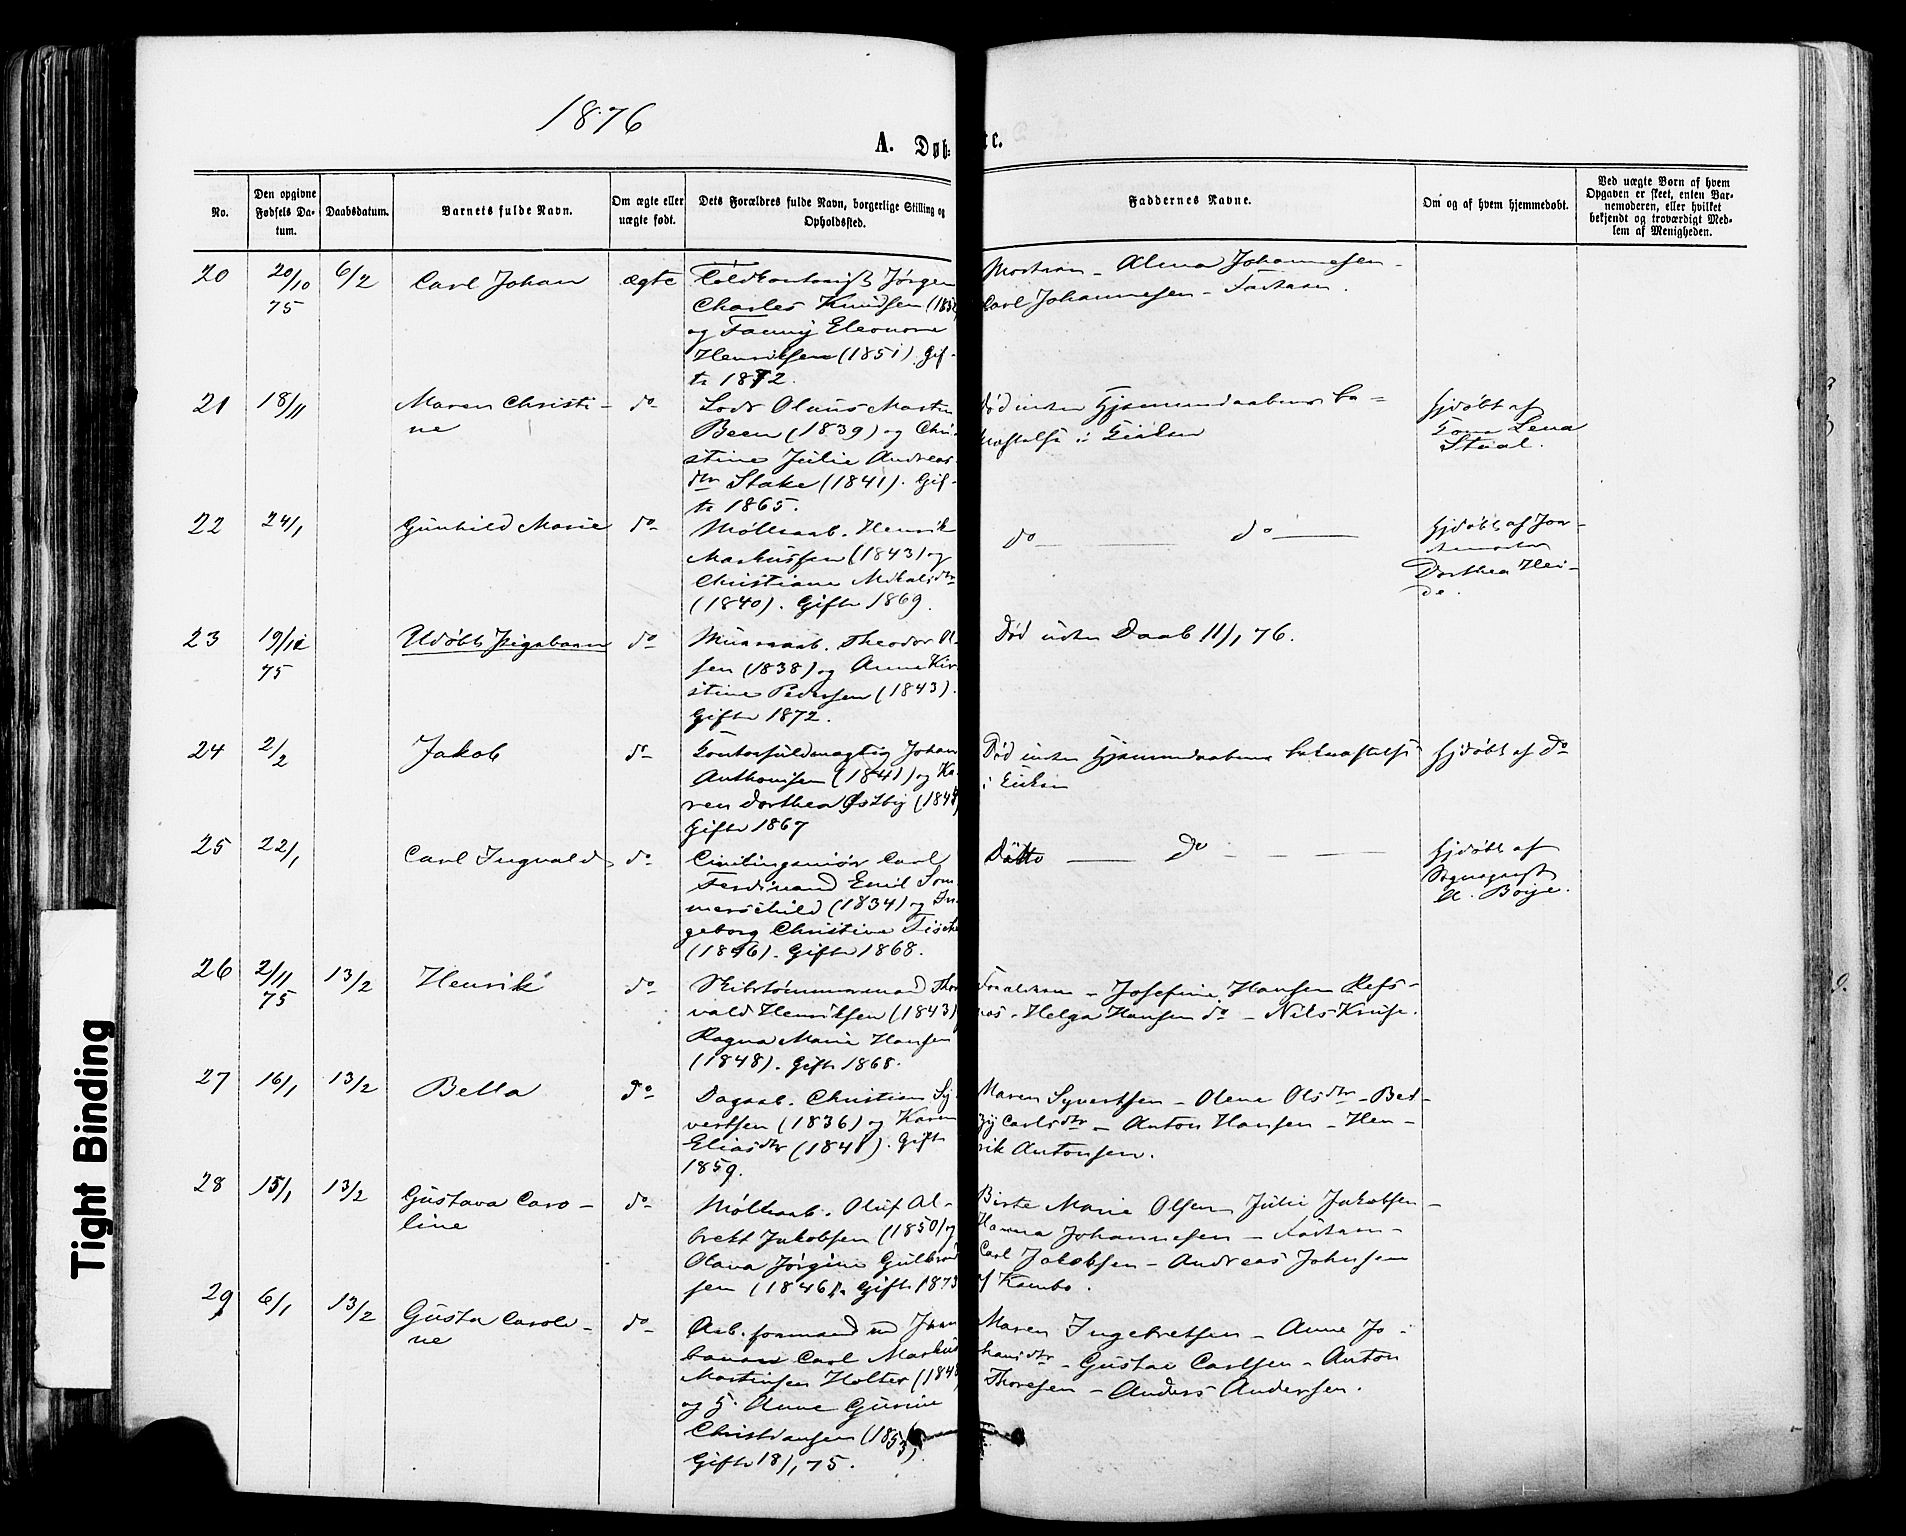 1876
A. Døb-
te.
No.
Den opgivne Fødsels Da-tum.
Daabsdatum.
Barnets fulde Navn.
Om ægte eller uægte født.
Dets Forældres fulde Navn, borgerlige Stilling og Opholdssted.
Faddernes Navne.
Om og af hvem hjemmedøbt.
Ved uægte Born af hvem Opgaven er skeet, enten Bar-nemoderen, eller hvilket bekjendt og troværdigt Med-lem af Menigheden.
20 20/10 75 6/2 Carl Johan ægte
Jørgen
Charles Knudsen
og Fanny Eleonore
Henriksen (1851). Gif-
te 1872.
Alma Johannesen -
Carl Johannesen -
21 18/11 Maren Christi-
ne
do
Olaus Martin
Been (1839) og Chri-
stine Julie Andreas-
dtr Stake (1841). Gif-
te 1865.
Død inden Hjemmedaabens be-
kræftelse i
Hjdøbt af
Lena
22 24/1 Gunhild Marie do
Møllearb. Henrik
Markussen (1843) og
Christiane Mikalsdtr
(1840). Gifte 1869.
do do
Hjdøbt af Jor-
demoder
Dorthea Hei-
de.
23 19/12 75 Udøbt Pigebarn do
Theodor Ol-
sen (1838) og Anne Kir-
stine Pedersen (1843).
Gifte 1872.
Død uden Daab 11/1 76.
24 2/2 Jakob do
Contorfuldmægtig Johan
Anthonisen (1841) og Ka-
ren Dorthea Østby
Gifte 1867
Død inden Hjemmedaabens bekræftelse
i
Hjdøbt af do
25 22/1 Carl Ingvald do
Civilingeniør Carl
Ferdinand Emil Som-
merschild (1834) og In-
geborg Christine
(1846). Gifte 1868.
Ditto do
Hjdøbt af
Boye.
26 2/11 75 13/2 Henrik do
Skibstømmermand Thor-
vald Henriksen (1843)
Ragna Marie Hansen
(1848). Gifte 1868.
Forældrene - Josefine Hansen Refs-
nes - Helga Hansen do - Nils Kruse.
27 16/1 13/2 Bella do
Dagarb. Christian Sy-
vertsen (1836) og Karen
Eliasdtr (1841). Gifte
1859.
Maren Syvertsen - Olena Olsdtr - Bet-
zy Carlsdtr - Anton Hansen - Hen-
rik Antonsen.
28 15/1 13/2 Gustava Caro-
line
do
Møllearb. Oluf Al-
brett Jakobsen (1850) og
Olava Jørgine Gulbrand-
sen (1846). Gifte 1873
Birte Marie Olsen Julie Jakobsen -
Hanna Johannesen -
Carl Jakobsen - Andreas Johnsen
af Kambo.
29 6/1 13/2 Gusta Caroli-
ne
do
Arb. formand ved Jern-
banen Carl Markus
Martinsen Holter
og H. Anne Gurine
Christiansen (1853)
Gifte 18/1 75.
Maren Ingebretsen - Anne Jo-
hansdtr - Gustav Carlsen - Anton
Thoresen - Anders Andersen.
Tight Binding